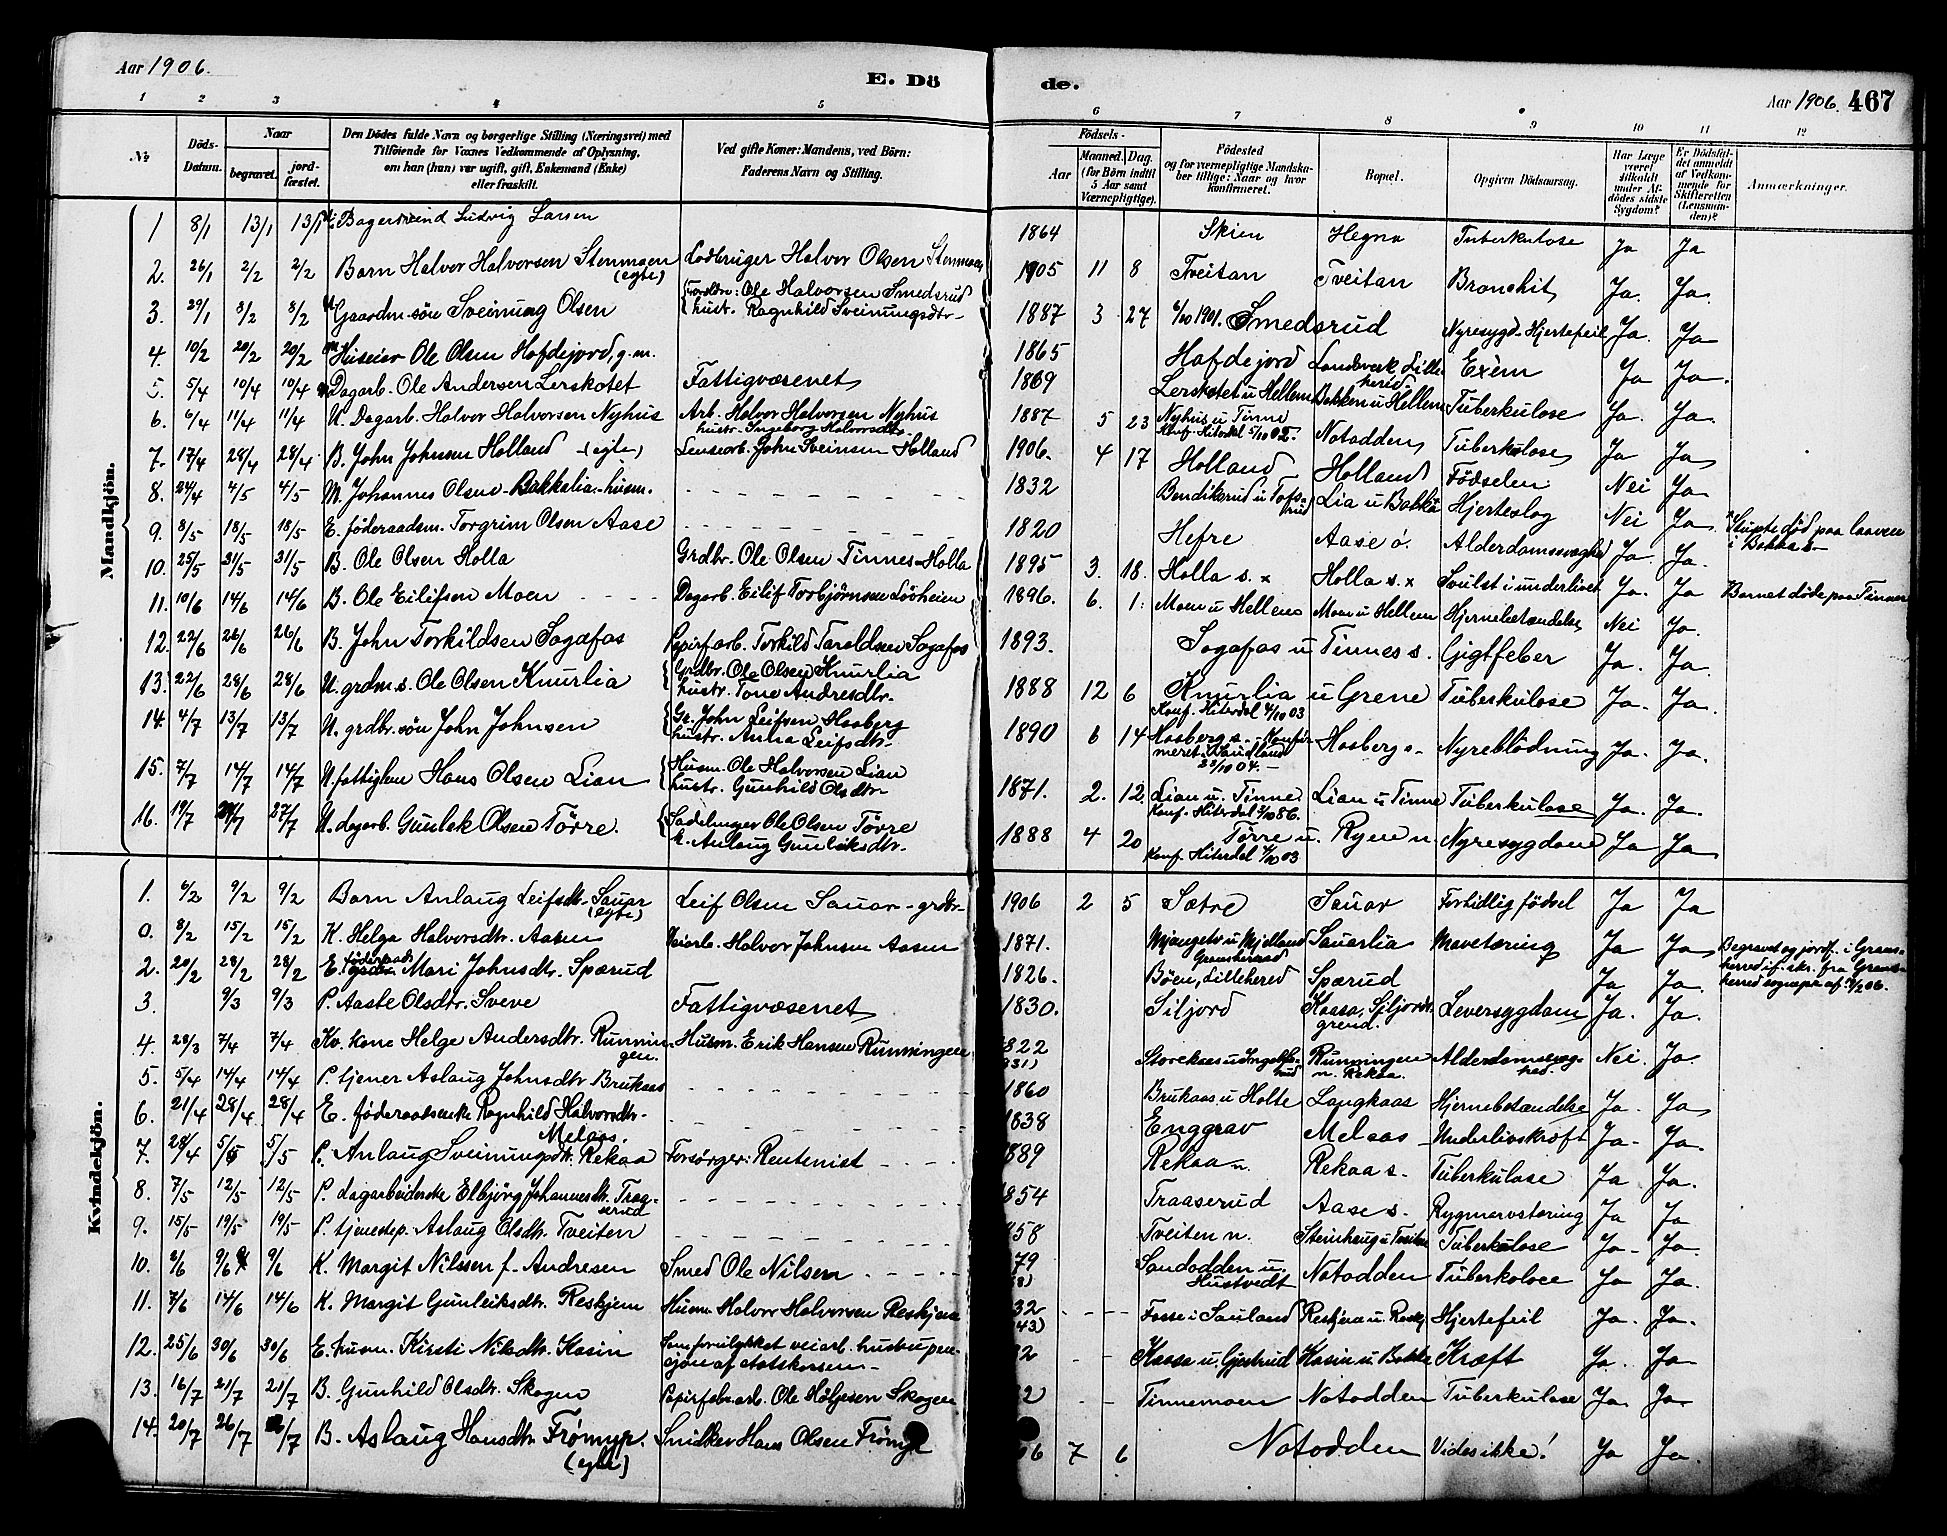 Aar 1906. E. Dö de. Aar 1906. 467
1 2 3 4 5 6 7 8 9 10 11 12
No. Döds-Datum. Naar begravet. jordfæstet. Den Dödes fulde Navn og borgerlige Stilling (Næringsvei) med Tilföiende for Voxnes Vedkommende af Oplysning, om han (hun) var ugift, gift, Enkemand (Enke) eller fraskilt. Ved gifte Koner: Mandens, ved Börn: Faderens Navn og Stilling. Födsels- Aar Maaned. Dag. (for Börn indtil 5 Aar samt Værnepligtige). Födested og for værnepligtige Mandskaber tillige: Naar og hvor konfirmeret. Bopæl. Opgiven Dödsaarsag. Har Læge været tilkaldt under Afdödes sidste Sygdom? Er Dödsfaldet anmeldt af Vedkommende for Skifteretten (Lensmanden)? Anmærkninger.
Mandkjön.
1 8/1 13/1 13/1 Bagersvend Ludvig Larsen 1864 Skien Hegna Tuberkulose Ja Ja
2. 26/1 2/2 2/2 Barn Halvor Halvorsen Stenmoen (egte) Lodbruger Halvor Olsen Stenmoen 1905 11 8 Tveitan Tveitan Bronchit Ja. Ja.
3. 29/1 8/2 8/2 Gaardm. sön Sveinung Olsen Foreldre: Ole Halvorsen Smedsrud hustr. Ragnhild Sveinungsdtr. 1887 3 27 6/10 1901. Smedsrud Nyresygd. Hjertefeil Ja. Ja
4. 10/2 20/2 20/2 Huseier Ole Olsen Hofdejord, g.m. 1865 Hafdejord Landsverk Lilleherid Exem Ja Ja.
5. 5/4 10/4 10/4 Dagarb. Ole Andersen Lerskotet Fattigvæsenet 1869 Lerskotet u Hellem Bakken u Hellem Tuberkulose Ja. Ja.
6. 6/4 11/4 11/4 U. Dagarb. Halvor Halvorsen Nyhus Arb. Halvor Halvorsen Nyhus hustr. Ingeborg Halvorsdtr. 1887 5 23 Nyhus u Tinne Konf. Hiterdal 5/10 02. Notodden Tuberkulose Ja Ja
7. 17/4 28/4 28/4 B. John Johnsen Holland (egte) Lensearb. John Sveinsen Holland 1906. 4 17 Holland Holland Födselen Nei Ja
8. 24/4 4/5 4/5 M. Johannes Olsen Bakkalia husm. 1832 Bendikerud u Tofsrud Lia u Bakka Hjerteslag Nei Ja Stupte død paa laaven i Bakka s.
9. 8/5 18/5 18/5 E. föderaadsm. Torgrim Olsen Aase 1820 Hefre Aase ö. Alderdomssvaghed Ja. Ja.
10. 25/5 31/5 31/5 B. Ole Olsen Holla Grdbr. Ole Olsen Tinnes-Holla 1895 3. 18. Holla s. x Holla s. x Svulst i underlivet Ja. Ja Barnet døde paa Tinnes
11. 10/6 14/6 14/6 B. Ole Eilifsen Moen Dagarb. Eilif Torbjørnsen Lövheim 1896. 6. 1. Moen u Hellem Moen u Hellem Hjernebetændelse Nei Ja.
12. 22/6 26/6 26/6 B. John Torkildsen Sagafos Papirfarb. Torkild Taraldsen Sagafos 1893. Sagafos u Tinnes s. Gigtfeber Ja. Ja.
13. 22/6 28/6 28/6 U. grdm. s. Ole Olsen Knurlia Grdbr. Ole Olsen Knurlia hustr. Tone Andresdtr. 1888 12 6 Knurlia u Grene Konf. Hiterdal 4/10 03 Tuberkulose Ja. Ja.
14. 4/7 13/7 13/7 U. grdbr. sön John Johnsen Gr. John Leifsen Haaberg hustr. Anna Leifsdtr. 1890 6 14 Haaberg s. Konfirmeret i Sauland 22/10 04. Hosberg s. Nyreblödning Ja. Ja.
15. 7/7 14/7 14/7 U. fattiglem Hans Olsen Lian Husm. Ole Halvorsen Lian hustr. Gunhild Olsdtr. 1871. 2. 12. Lian u. Tinne Konf. Hiterdal 3/10 86. Lian u Tinne Tuberkulose Ja. Ja.
16. 19/7 27/7 U. dagarb. Gunlek Olsen Törre. Sadelmager Ole Olsen Törre k. Anlaug Gunleiksdtr. 1888 4 20 Törre u. Ryen n. Konf. Hiterdal 4/10 03 Nyresygdom Ja Ja
Kvindekjön.
1. 6/2 9/2 9/2 Barn Anlaug Leifsdtr. Sauar (egte) Leif Olsen Sauar grdbr. 1906 2 5 Sætre Sauar Fortidlig födsel Ja Ja
0. 8/2 15/2 15/2 K. Helga Halvorsdtr. Aasen Veiarb. Halvor Johnsen Aasen 1871. Mjaugetv u Mjelland Gransherad Sauarlia Mavetæring Ja Ja Begravet og jordf. i Gransherred if. skr. fra Gransherred sognepr. af
2. 20/2 28/2 28/2 E. föderaads Mari Johnsdtr. Spærud 1826. Böen, Lilleherred Spærud Ja Ja.
3. 9/3 9/3 P. Aaste Olsdtr. Sveve Fattigvæsenet 1830. Siljord Kaasa, Siljords grend. Leversygdom Ja. Ja.
4. 28/3 7/4 7/4 Kv. kone Helge Andersdtr. Runningen. Husm. Erik Hansen Runningen 822 831) Storekaas u Ingolfsrud Runningen u. Rekaa. Alderdomssvaghed. Nei Ja.
5. 5/4 14/4 14/4 P. tjener Aslaug Johnsdtr Brukaas 1860 Brukaas u Holte Langkaas Hjernebetændelse Ja. Ja
6. 21/4 28/4 28/4 E. föderaadsenke Ragnhild Halvorsdtr. Melaas. 1838 Enggrav Melaas Underlivskræft Ja. Ja.
7. 28/4 5/5 5/5 P. Anlaug Sveinungsdtr. Rekaa Forsörger: Rentenist 889 Rekaa n. Rekaa s. Tuberkulose Ja Ja.
8. 7/5 12/5 12/5 P. dagarbeiderske Elbjörg Johannesdtr. Traaserud 854 Traaserud Aase s. Rygmarvstæring Ja Ja
9. 15/5 19/5 19/5 P. tjenestep. Aslaug Olsdtr. Tveiten 858 Tveiten n. Steinhaug u Tveiten Tuberkulose Ja Ja.
10. 2/6 9/6 9/6 K. Margit Nilssen f. Andresen Smed Ole Nilsen 79 Sandodden u. Hustvedt Notodden Tuberkolose Ja Ja.
11. 7/6 14/6 14/6 K. Margit Gunleiksdtr. Reskjem Husm. Halvor Halvorsen Reskjem 32 43) Fosse i Sauland Reskjem u. Reskj Hjertefeil Ja. Ja.
12. 25/6 30/6 30/6 E. husm. Kirsti Nilsdtr. Kasin veiarb. hustru pensjon af statskassen 2 Kaasa u. Gjestrud Kasin u. Bakka Kræft Ja. Ja
13. 16/7 21/7 21/7 B. Gunhild Olsdtr. Skogen Papirfabr.arb. Ole Höljesen Skogen 2 Tinnemoen Notodden Tuberkulose Ja. Ja.
14. 20/7 26/7 26/7 B. Aslaug Hansdtr. Frömyr. (egte) Snidker Hans Olsen Frömyr 06 7 6 Notodden Vides ikke! Ja Ja.